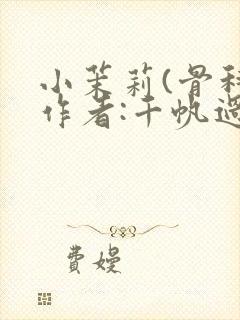 小茉莉(骨科
作者:千帆過
費嫚